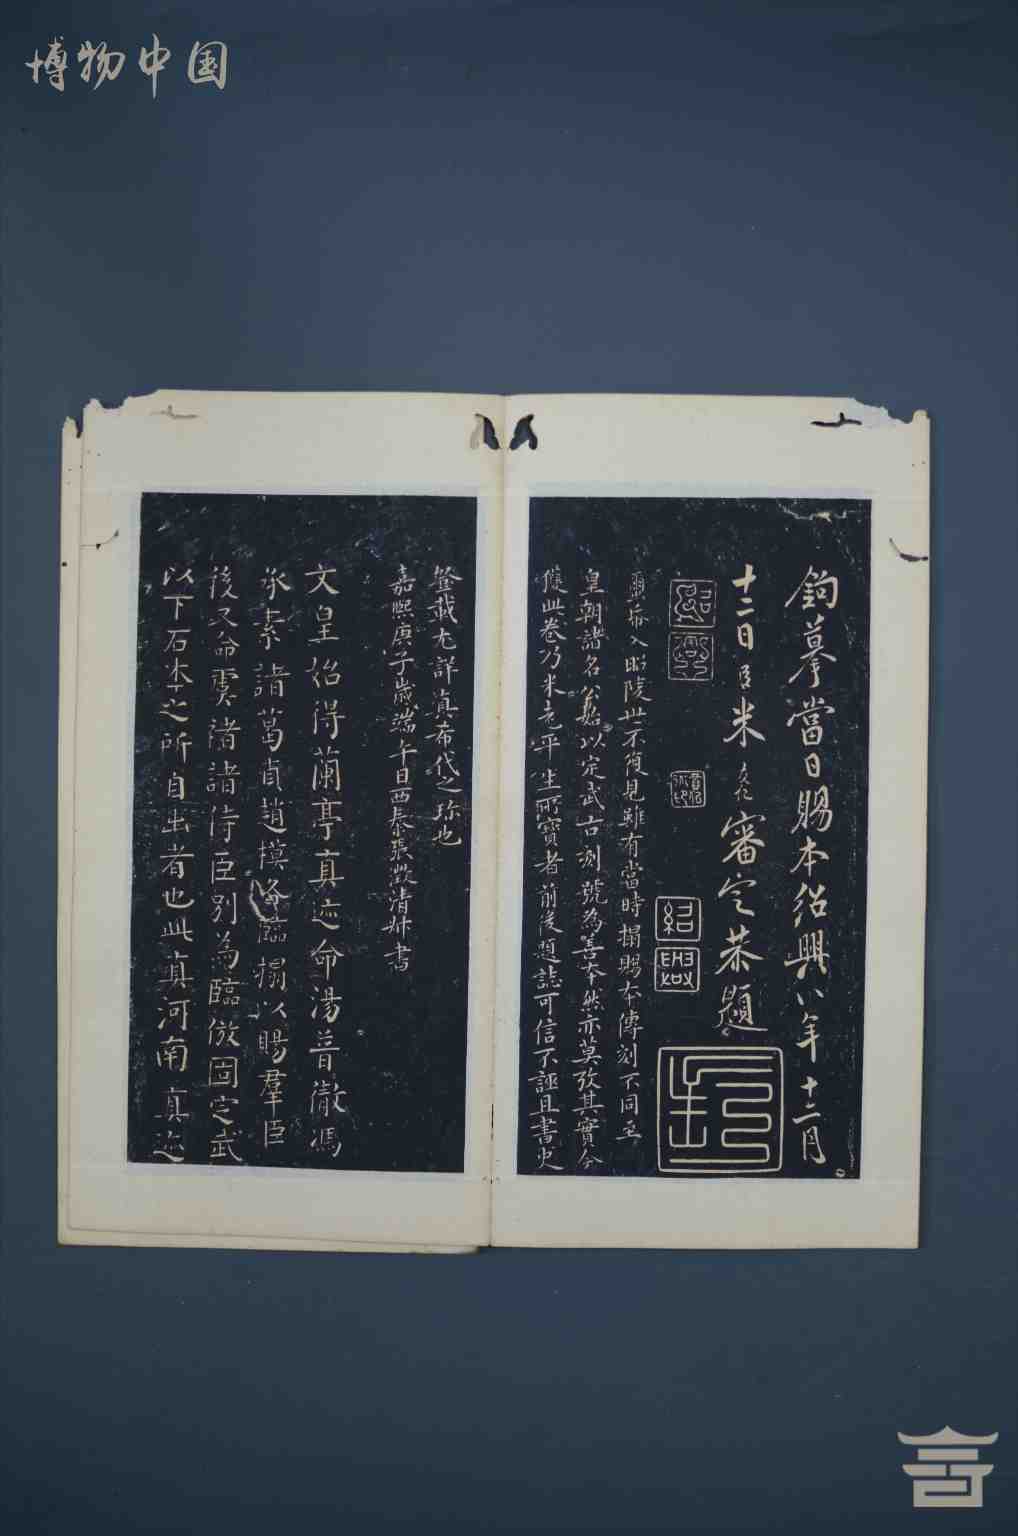 博物中国
鉤摹當日賜本紹興八年十二月
十二日臣米友仁審定恭題
紹興
紹興
繭帋入昭陵世不復見雖有當時搨賜本傳刻不同至
皇朝諸名公嘉以定武古刻號為善本然亦莫攷其實今
獲此卷乃米老平生所寶者前後題誌可信不誣且書史
登載尤詳真希代之珍也
嘉熙庚子歲端午日西秦張澂清卿書
文皇始得蘭亭真迹命湯普徹馮
承素諸葛貞趙模各臨搨以賜羣臣
後又命虞褚諸侍臣別為臨倣固定武
以下石本之所自出者也此真河南真迹